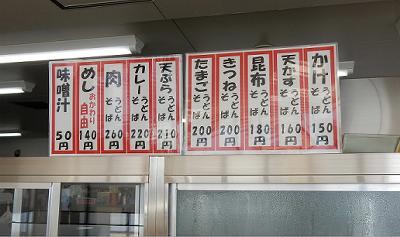 かけ うどん そば 150円
天かす うどん そば 160円
昆布 うどん そば 180円
きつね うどん そば 200円
たまご うどん そば 200円
天ぷら うどん そば 210円
カレー うどん そば 220円
肉 うどん そば 260円
めし おかわり自由 140円
味噌汁 50円